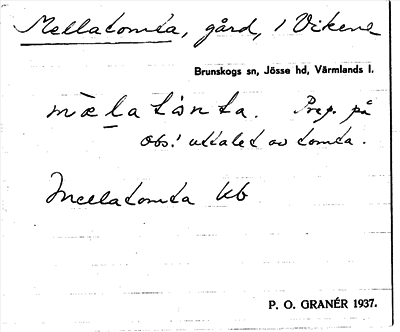 Mellatomta, gård, i Vikene
Brunskogs sn, Jösse hd, Värmlands l.
mælatònta. Prep. på
obs! uttalet av tomta.
Mellatomta kb
P. O. GRANÉR 1937.